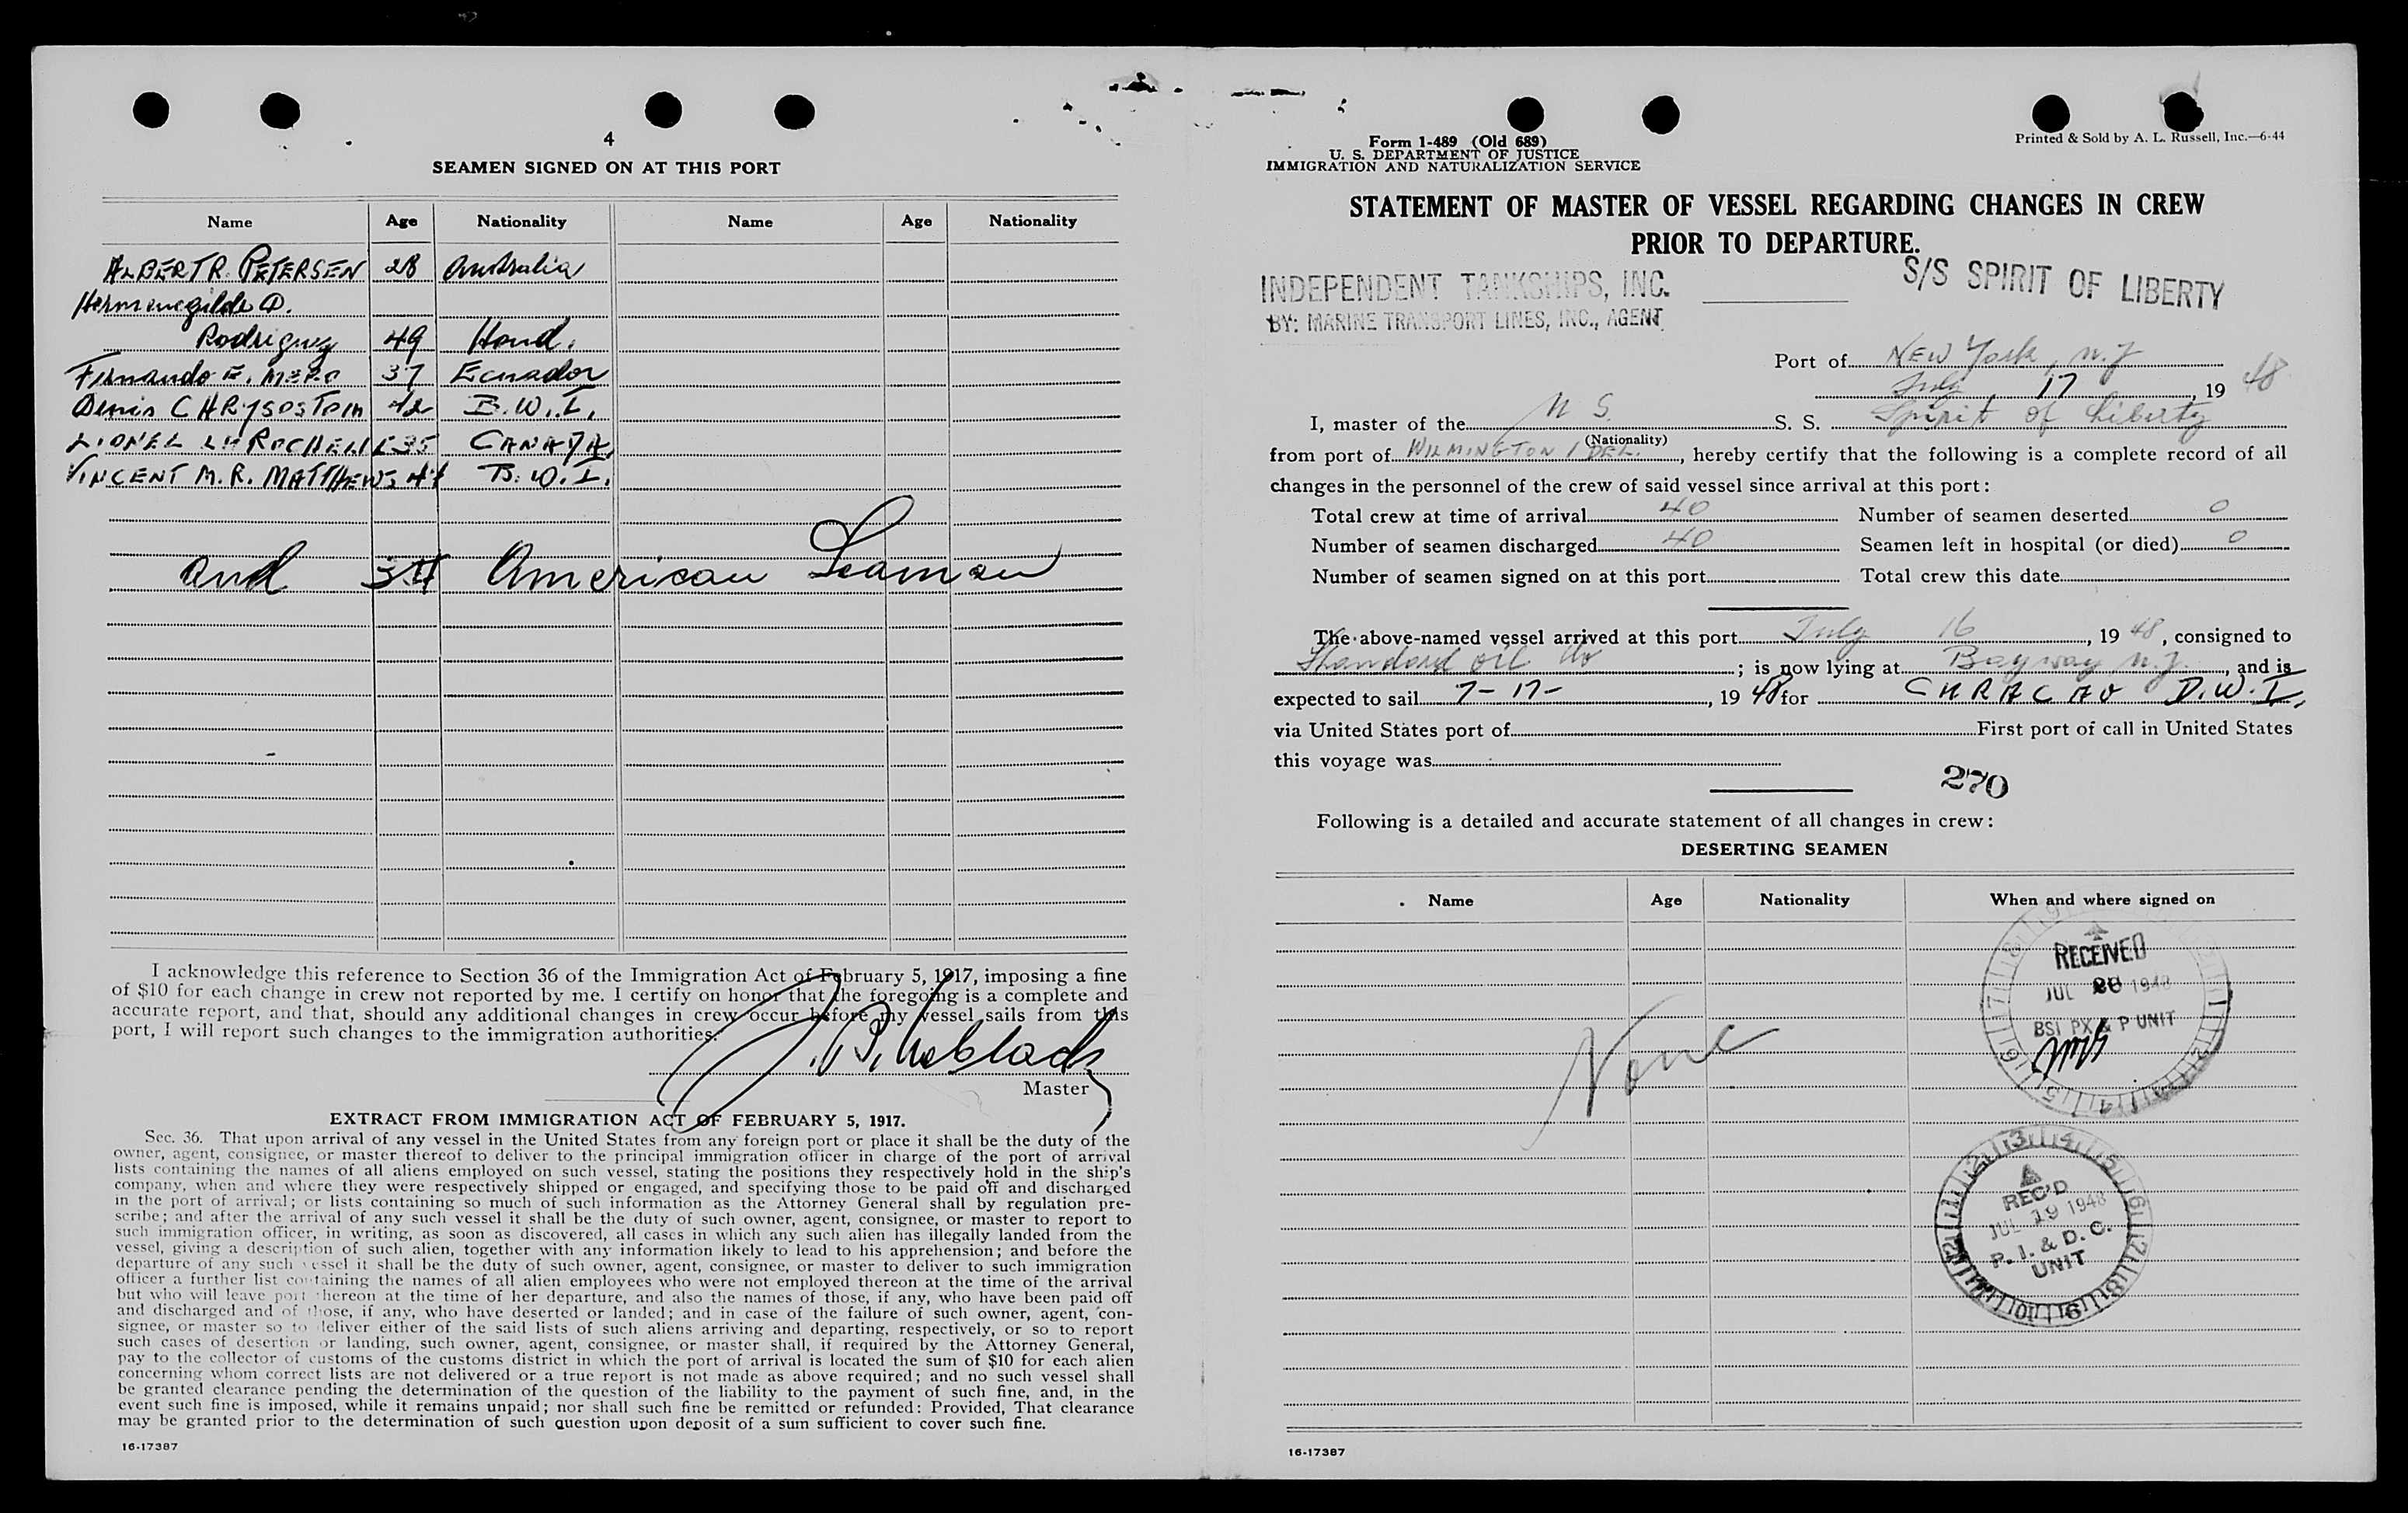 4
SEAMEN SIGNED ON AT THIS PORT
Name Age Nationality Name Age Nationality
ALBERT R. PETERSEN 28 Australia
Hermenegilde
49 Hond.
Fernando E. 37 Ecuador
Denis CHRYSOSTOM 42 B.W.I.
LIONEL LAROCHELLE 35 CANADA
VINCENT M.R. MATTHEWS B.W.I.
and 34 American Seaman
I acknowledge this reference to Section 36 of the Immigration Act of February 5, 1917, imposing a fine
of $10 for each change in crew not reported by me. I certify on honor that the foregoing is a complete and
accurate report, and that, should any additional changes in crew occur before my vessel sails from this
port, I will report such changes to the immigration authorities.
Master
EXTRACT FROM IMMIGRATION ACT OF FEBRUARY 5, 1917.
Sec. 36. That upon arrival of any vessel in the United States from any foreign port or place it shall be the duty of the
owner, agent, consignee, or master thereof to deliver to the principal immigration officer in charge of the port of arrival
lists containing the names of all aliens employed on such vessel, stating the positions they respectively hold in the ship's
company, when and where they were respectively shipped or engaged, and specifying those to be paid off and discharged
in the port of arrival; or lists containing so much of such information as the Attorney General shall by regulation pre-
scribe; and after the arrival of any such vessel it shall be the duty of such owner, agent, consignee, or master to report to
such immigration officer, in writing, as soon as discovered, all cases in which any such alien has illegally landed from the
vessel, giving a description of such alien, together with any information likely to lead to his apprehension; and before the
departure of any such vessel it shall be the duty of such owner, agent, consignee, or master to deliver to such immigration
officer a further list containing the names of all alien employees who were not employed thereon at the time of the arrival
but who will leave port thereon at the time of her departure, and also the names of those, if any, who have been paid off
and discharged and of those, if any, who have deserted or landed; and in case of the failure of such owner, agent, con-
signee, or master so to deliver either of the said lists of such aliens arriving and departing, respectively, or so to report
such cases of desertion or landing, such owner, agent, consignee, or master shall, if required by the Attorney General,
pay to the collector of customs of the customs district in which the port of arrival is located the sum of $10 for each alien
concerning whom correct lists are not delivered or a true report is not made as above required; and no such vessel shall
be granted clearance pending the determination of the question of the liability to the payment of such fine, and, in the
event such fine is imposed, while it remains unpaid; nor shall such fine be remitted or refunded: Provided, That clearance
may be granted prior to the determination of such question upon deposit of a sum sufficient to cover such fine.
16-17387
Form 1-489 (Old 689)
U. S. DEPARTMENT OF JUSTICE
IMMIGRATION AND NATURALIZATION SERVICE
Printed & Sold by A. L. Russell, Inc.—6-44
STATEMENT OF MASTER OF VESSEL REGARDING CHANGES IN CREW
PRIOR TO DEPARTURE.
INDEPENDENT TANKSHIPS, INC.
BY: MARINE TRANSPORT LINES, INC., AGENT
S/S SPIRIT OF LIBERTY
Port of New York, N.J
July 17, 19 48
I, master of the U S. S. S. Spirit of Liberty
(Nationality)
from port of WILMINGTON / DEL., hereby certify that the following is a complete record of all
changes in the personnel of the crew of said vessel since arrival at this port:
Total crew at time of arrival 40 Number of seamen deserted 0
Number of seamen discharged 40 Seamen left in hospital (or died) 0
Number of seamen signed on at this port Total crew this date
The above-named vessel arrived at this port July 16, 19 48, consigned to
Standard oil Co; is now lying at Bayway N.J., and is
expected to sail 7-17-, 19 48 for CURACAO D.W.I.
via United States port of First port of call in United States
this voyage was
270
Following is a detailed and accurate statement of all changes in crew:
DESERTING SEAMEN
Name Age Nationality When and where signed on
None
RECEIVED
JUL 20 1948
BSI PX & P UNIT
REC'D
JUL 19 1948
P. I. & D. C.
UNIT
16-17387